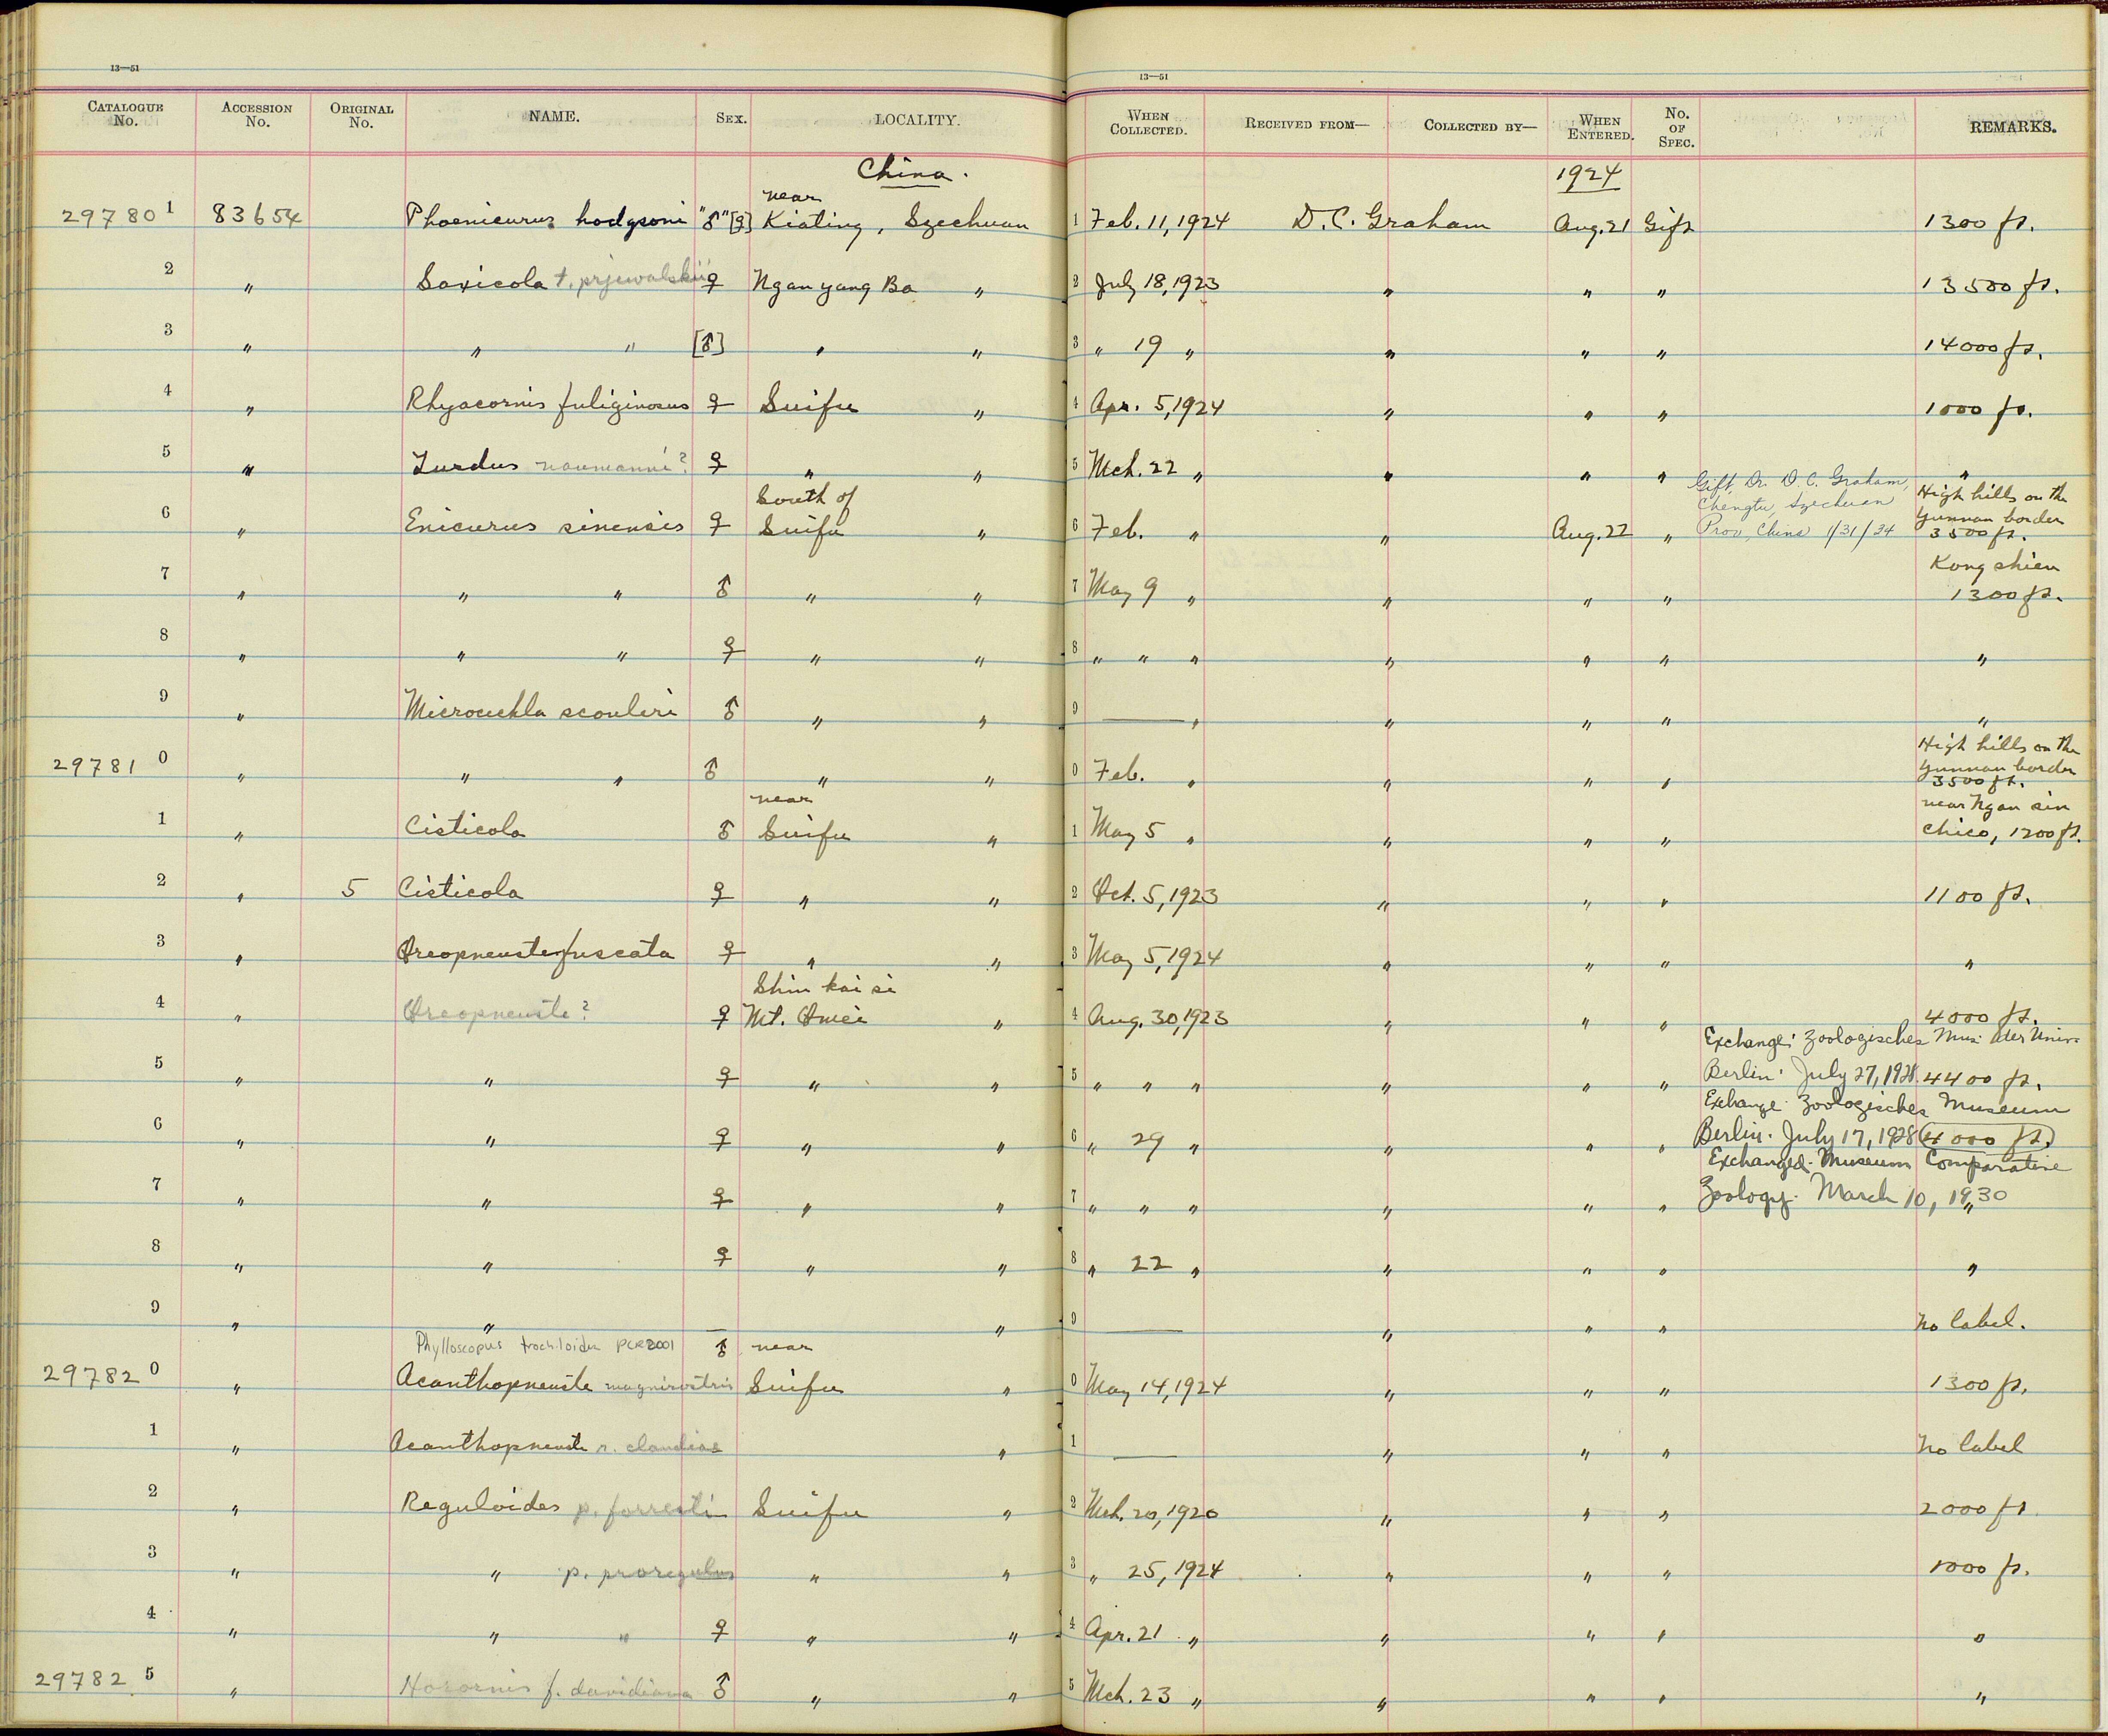 13—51 13—51
CATALOGUE No. ACCESSION No. ORIGINAL No. NAME. SEX. LOCALITY. WHEN COLLECTED. RECEIVED FROM— COLLECTED BY— WHEN ENTERED. No. OF SPEC. REMARKS.
China. 1924
near
29780 1 83654 Phoenicurus hodgsoni "♂" [♀] Kiating, Szechuan 1 Feb. 11, 1924 D. C. Graham Aug. 21 Gift 1300 ft.
2 " Saxicola t. prjewalskii ♀ Ngan yang Ba " 2 July 18, 1923 " " " 13500 ft.
3 " " " [♂] " " 3 " 19 " " " " 14000 ft.
4 " Rhyacornis fuliginosus ♀ Suifu " 4 Apr. 5, 1924 " " " 1000 ft.
5 " Turdus naumanni? ♀ " " 5 Mch. 22 " " " " "
Gift, Dr. D. C. Graham,
Chengtu, Szechuan
Prov, China 1/31/34
South of High hills on the
Yunnan border
6 " Enicurus sinensis ♀ Suifu " 6 Feb. " " Aug. 22 " 3500 ft.
Kong shien
7 " " " ♂ " " 7 May 9 " " " " 1300 ft.
8 " " " ♀ " " 8 " " " " " " "
9 " Microcichla scouleri ♂ " " 9 — " " " " "
High hills on the
Yunnan border
29781 0 " " " ♂ " " 0 Feb. " " " " 3500 ft.
near near Ngan sin
1 " Cisticola ♂ Suifu " 1 May 5 " " " " chico, 1200 ft.
2 " 5 Cisticola ♀ " " 2 Oct. 5, 1923 " " " 1100 ft.
3 " Oreopneuste fuscata ♀ " " 3 May 5, 1924 " " " "
Shin kai si
4 " Oreopneuste? ♀ Mt. Omei " 4 Aug. 30, 1923 " " " 4000 ft.
Exchange: Zoologisches Mus. der Univ.
5 " " ♀ " " 5 " " " " " " Berlin. July 27, 1928. 4400 ft.
Exchange Zoologisches Museum
6 " " ♀ " " 6 " 29 " " " " Berlin. July 17, 1928 4000 ft.
Exchanged. Museum Comparative
7 " " ♀ " " 7 " " " " " " Zoology. March 10, 1930 "
8 " " ♀ " " 8 " 22 " " " " "
9 " " — " 9 — " " " No label.
Phylloscopus trochiloides PCR2001 ♂ near
29782 0 " Acanthopneuste magnirostris Suifu " 0 May 14, 1924 " " " 1300 ft.
1 " Acanthopneuste r. claudiae " 1 — " " " No label
2 " Reguloides p. forresti Suifu " 2 Mch. 20, 1920 " " " 2000 ft
3 " " p. proregulus " " 3 " 25, 1924 " " " 1000 ft.
4 " " " ♀ " " 4 Apr. 21 " " " " "
29782 5 " Horornis f. davidiana ♂ " " 5 Mch. 23 " " " " "